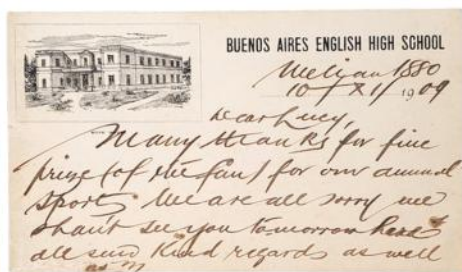 BUENOS AIRES ENGLISH HIGH SCHOOL
Melian 1880
10 / XI / 1909
Dear Lucy,
Many thanks for fine
prize (of the fan) for our annual
sports. We are all sorry we
shan't see you tomorrow
all send kind regards as well
as m